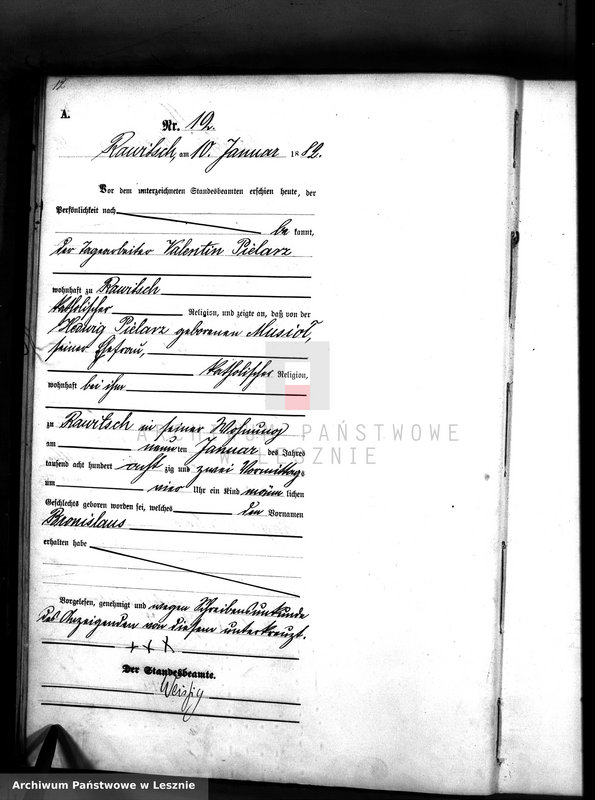 12
A.
Nr. 12.
Rawitsch, am 10. Januar 1882.
Vor dem unterzeichneten Standesbeamten erschien heute, der
Persönlichkeit nach
be kannt,
der Tagearbeiter Valentin Pielarz
wohnhaft zu Rawitsch
katholischer Religion, und zeigte an, daß von der
Hedwig Pielarz geborenen Musioł,
seiner Ehefrau,
katholischer Religion,
wohnhaft bei ihm
zu Rawitsch in seiner Wohnung
am neun ten Januar des Jahres
tausend acht hundert acht zig und zwei Vormittags
um vier Uhr ein Kind männ lichen
Geschlechts geboren worden sei, welches den Vornamen
Bronislaus
erhalten habe
Vorgelesen, genehmigt und wegen Schreibensunkunde
des Anzeigenden von diesem unterkreuzt.
+ + X
Der Standesbeamte.
ARCHIWUM PAŃSTWOWE
W LESZNIE
Archiwum Państwowe w Lesznie